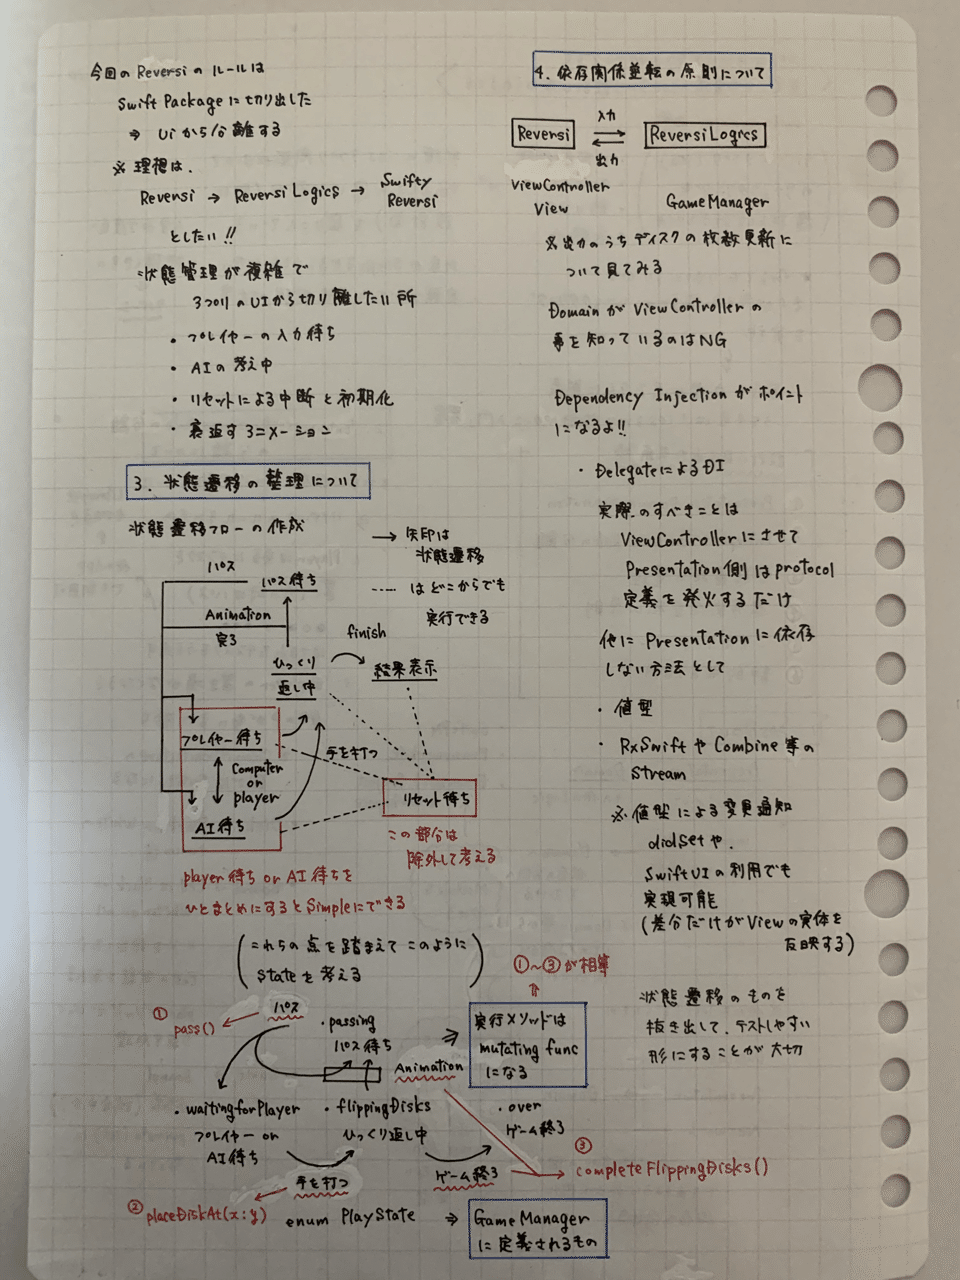 今回のReversiのルールは
Swift Packageに切り出した
⇒ UIから分離する
※理想は、
Reversi → Reversi Logics → Swifty Reversi
としたい!!
状態管理が複雑で
3つのUIから切り離したい所
・プレイヤーの入力待ち
・AIの考え中
・リセットによる中断と初期化
・裏返すアニメーション
3. 状態遷移の整理について
状態遷移フローの作成
→ 矢印は
状態遷移
..... はどこからでも
実行できる
パス
パス待ち
Animation
完了
finish
ひっくり
返し中
結果表示
プレイヤー待ち
手を打つ
Computer
or
player
AI待ち
リセット待ち
この部分は
除外して考える
player待ち or AI待ちを
ひとまとめにするとSimpleにできる
(これらの点を踏まえてこのように
Stateを考える)
①〜③が相等
① pass()
パス
・passing
パス待ち
⇒
実行メソッドは
mutating func
になる
Animation
・waitingforPlayer
プレイヤー or
AI待ち
・flippingDisks
ひっくり返し中
・over
ゲーム終了
手を打つ
ゲーム終了
③ completeFlippingDisks()
② placeDiskAt(x:y)
enum PlayState ⇒ GameManager
に定義されるもの
4. 依存関係逆転の原則について
Reversi
入力
出力
ReversiLogics
ViewController
View
GameManager
※出力のうちディスクの枚数更新に
ついて見てみる
DomainがViewControllerの
事を知っているのはNG
Dependency Injectionがポイント
になるよ!!
・DelegateによるDI
実際のすべきことは
ViewControllerにさせて
Presentation側はprotocol
定義を発火するだけ
他にPresentationに依存
しない方法として
・値型
・RxSwiftやCombine等の
Stream
※値型による変更通知
didSetや、
SwiftUIの利用でも
実現可能
(差分だけがViewの実体を
反映する)
状態遷移のものを
抜き出して、テストしやすい
形にすることが大切